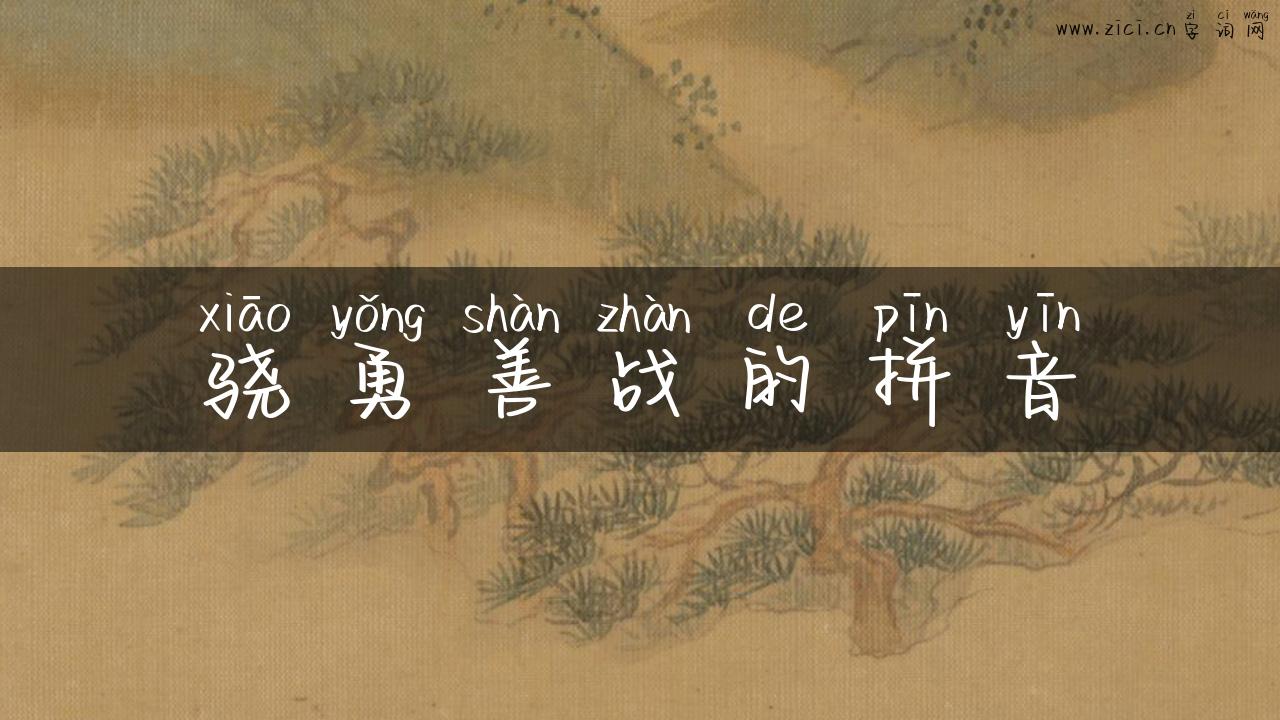 zì cí wǎng
www.zici.cn 字词网
xiāo yǒng shàn zhàn de pīn yīn
骁勇善战的拼音